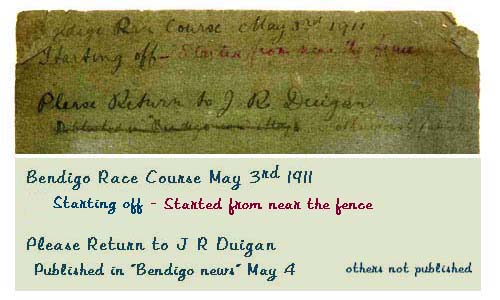 Bendigo Race Course May 3rd 1911
Starting off - Started from near the fence
Please Return to J R Duigan
Published in "Bendigo news" May 4
Bendigo Race Course May 3rd 1911
Starting off - Started from near the fence
Please Return to J R Duigan
Published in "Bendigo news" May 4 others not published